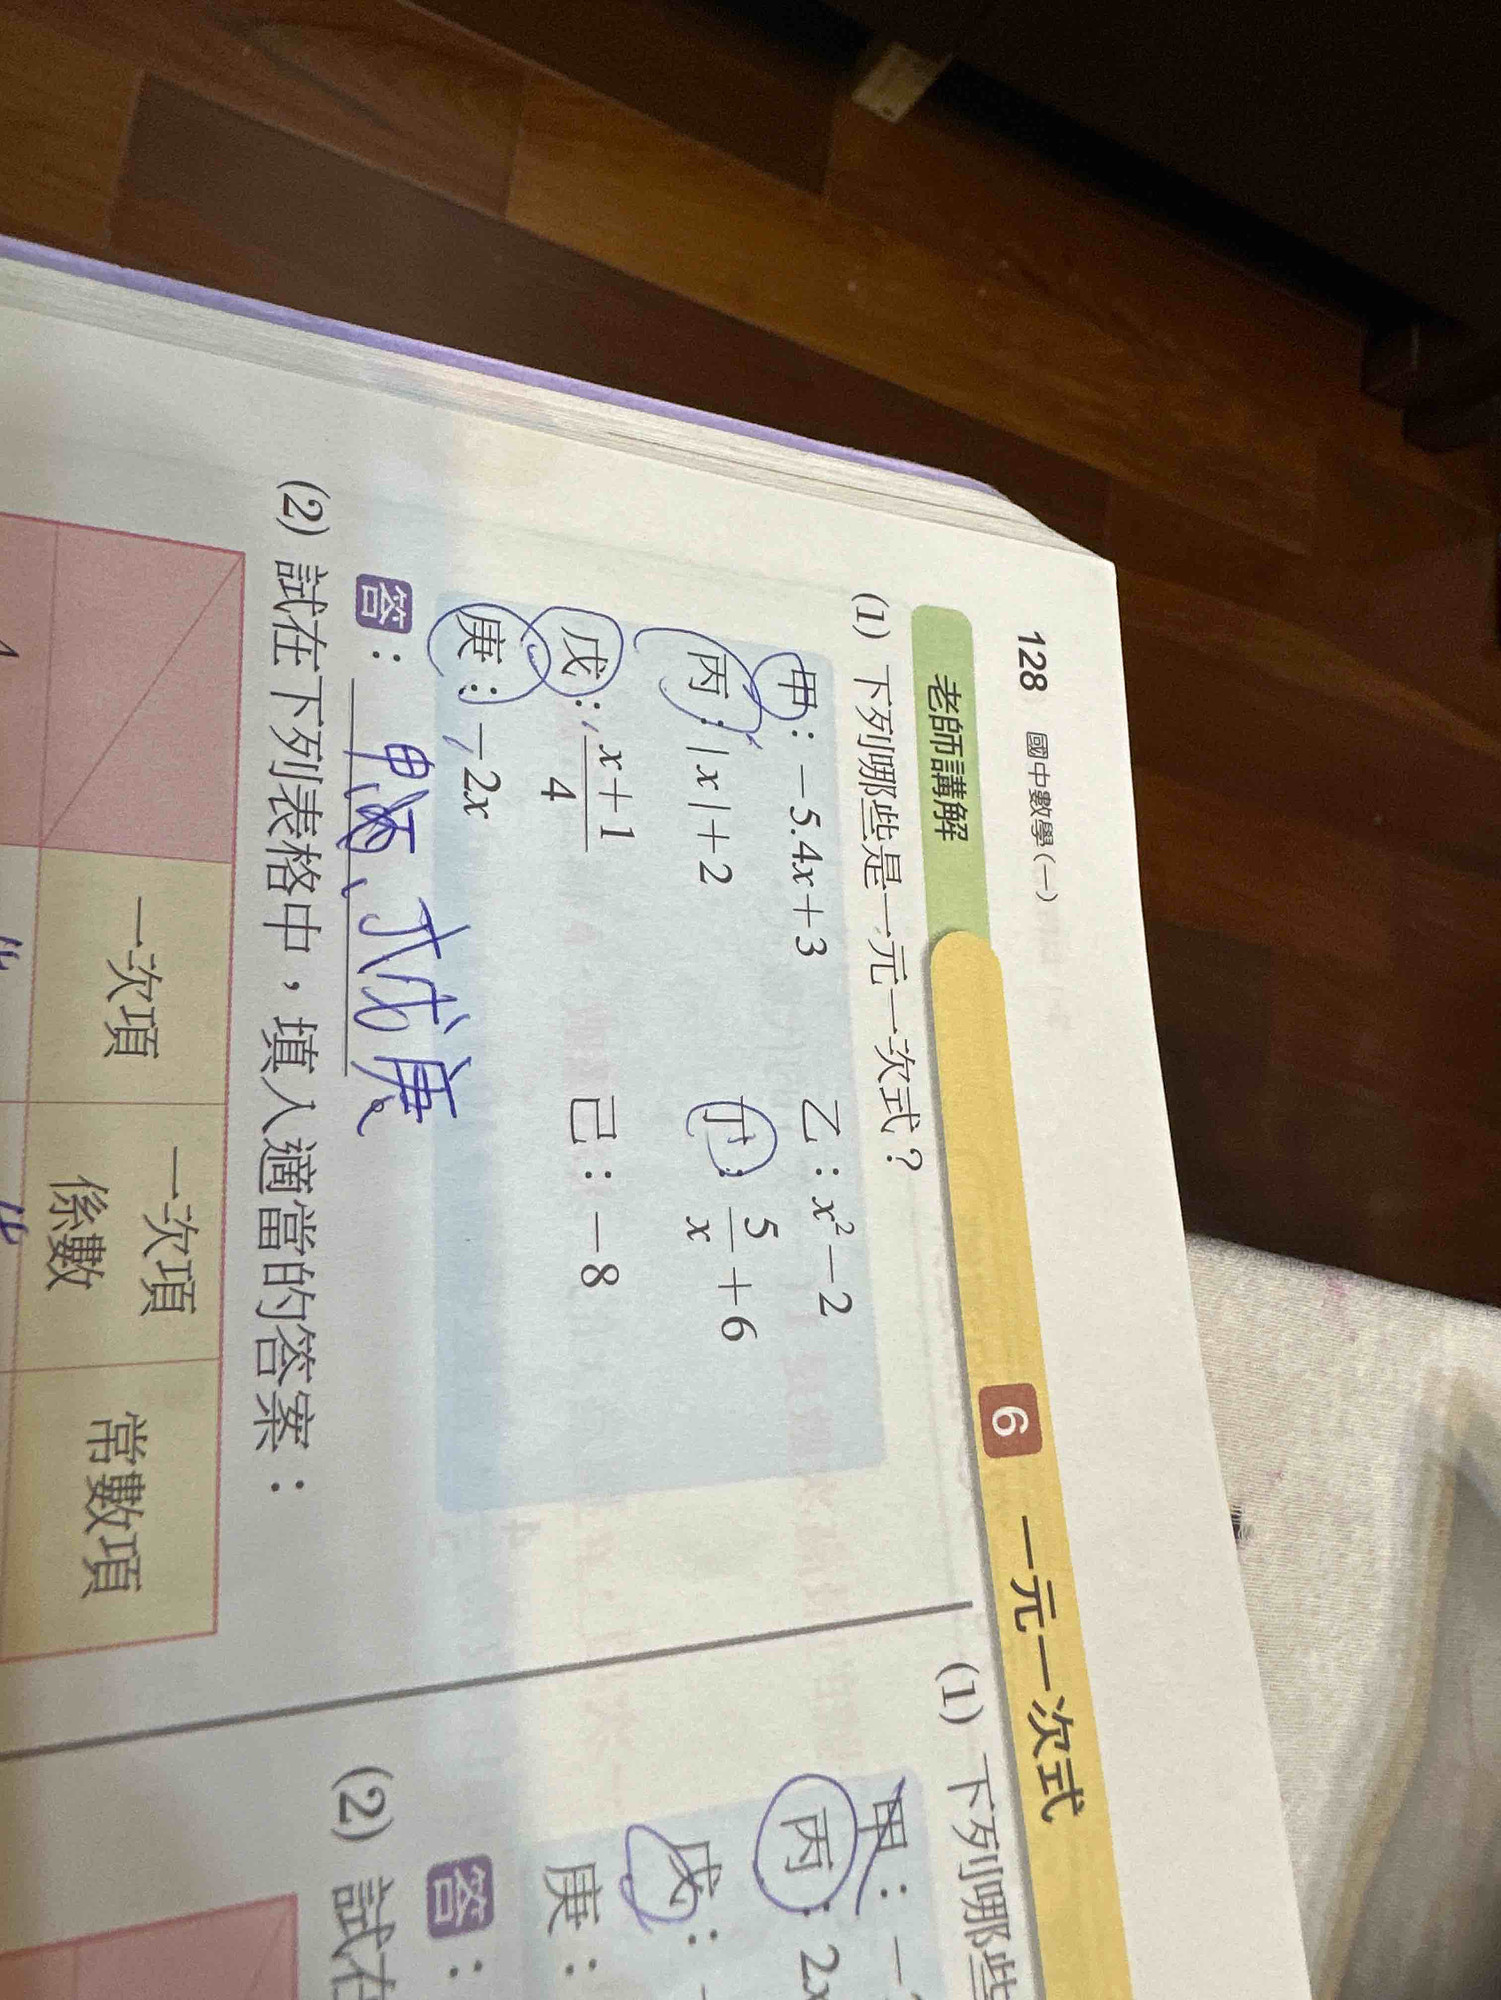 128 國中數學(一)
老師講解
6 一元一次式
(1) 下列哪些是一元一次式?
甲:-5.4x+3 乙:x²-2
丙:|x|+2 丁:5/x+6
戊:(x+1)/4 己:-8
庚:-2x
答:甲、戊庚
(2) 試在下列表格中,填入適當的答案:
一次項 一次項係數 常數項
(1) 下列哪些
甲:-
丙:2x
戊:-
庚:
答:
(2) 試在